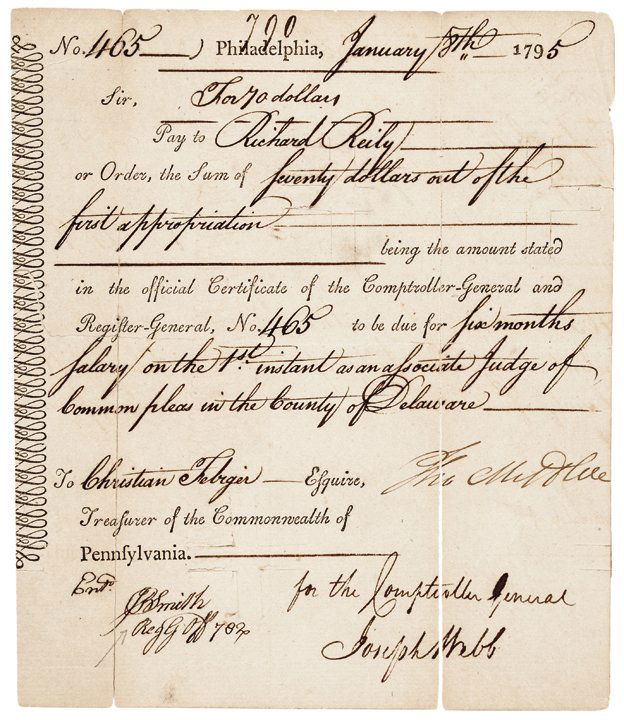 790
No. 465 ) Philadelphia, January 8th 1795
Sir, For 70 dollars
Pay to Richard Reily
or Order, the Sum of seventy dollars out of the
first appropriation
being the amount stated
in the official Certificate of the Comptroller-General and
Register-General, No. 465 to be due for six months
salary on the 1st. instant as an associate Judge of
Common pleas in the County of Delaware
To Christian Febiger Esquire,
Treasurer of the Commonwealth of
Pennsylvania.
Entd.
Smith
Reg G Off 782
for the Comptroller General
Joseph Webb